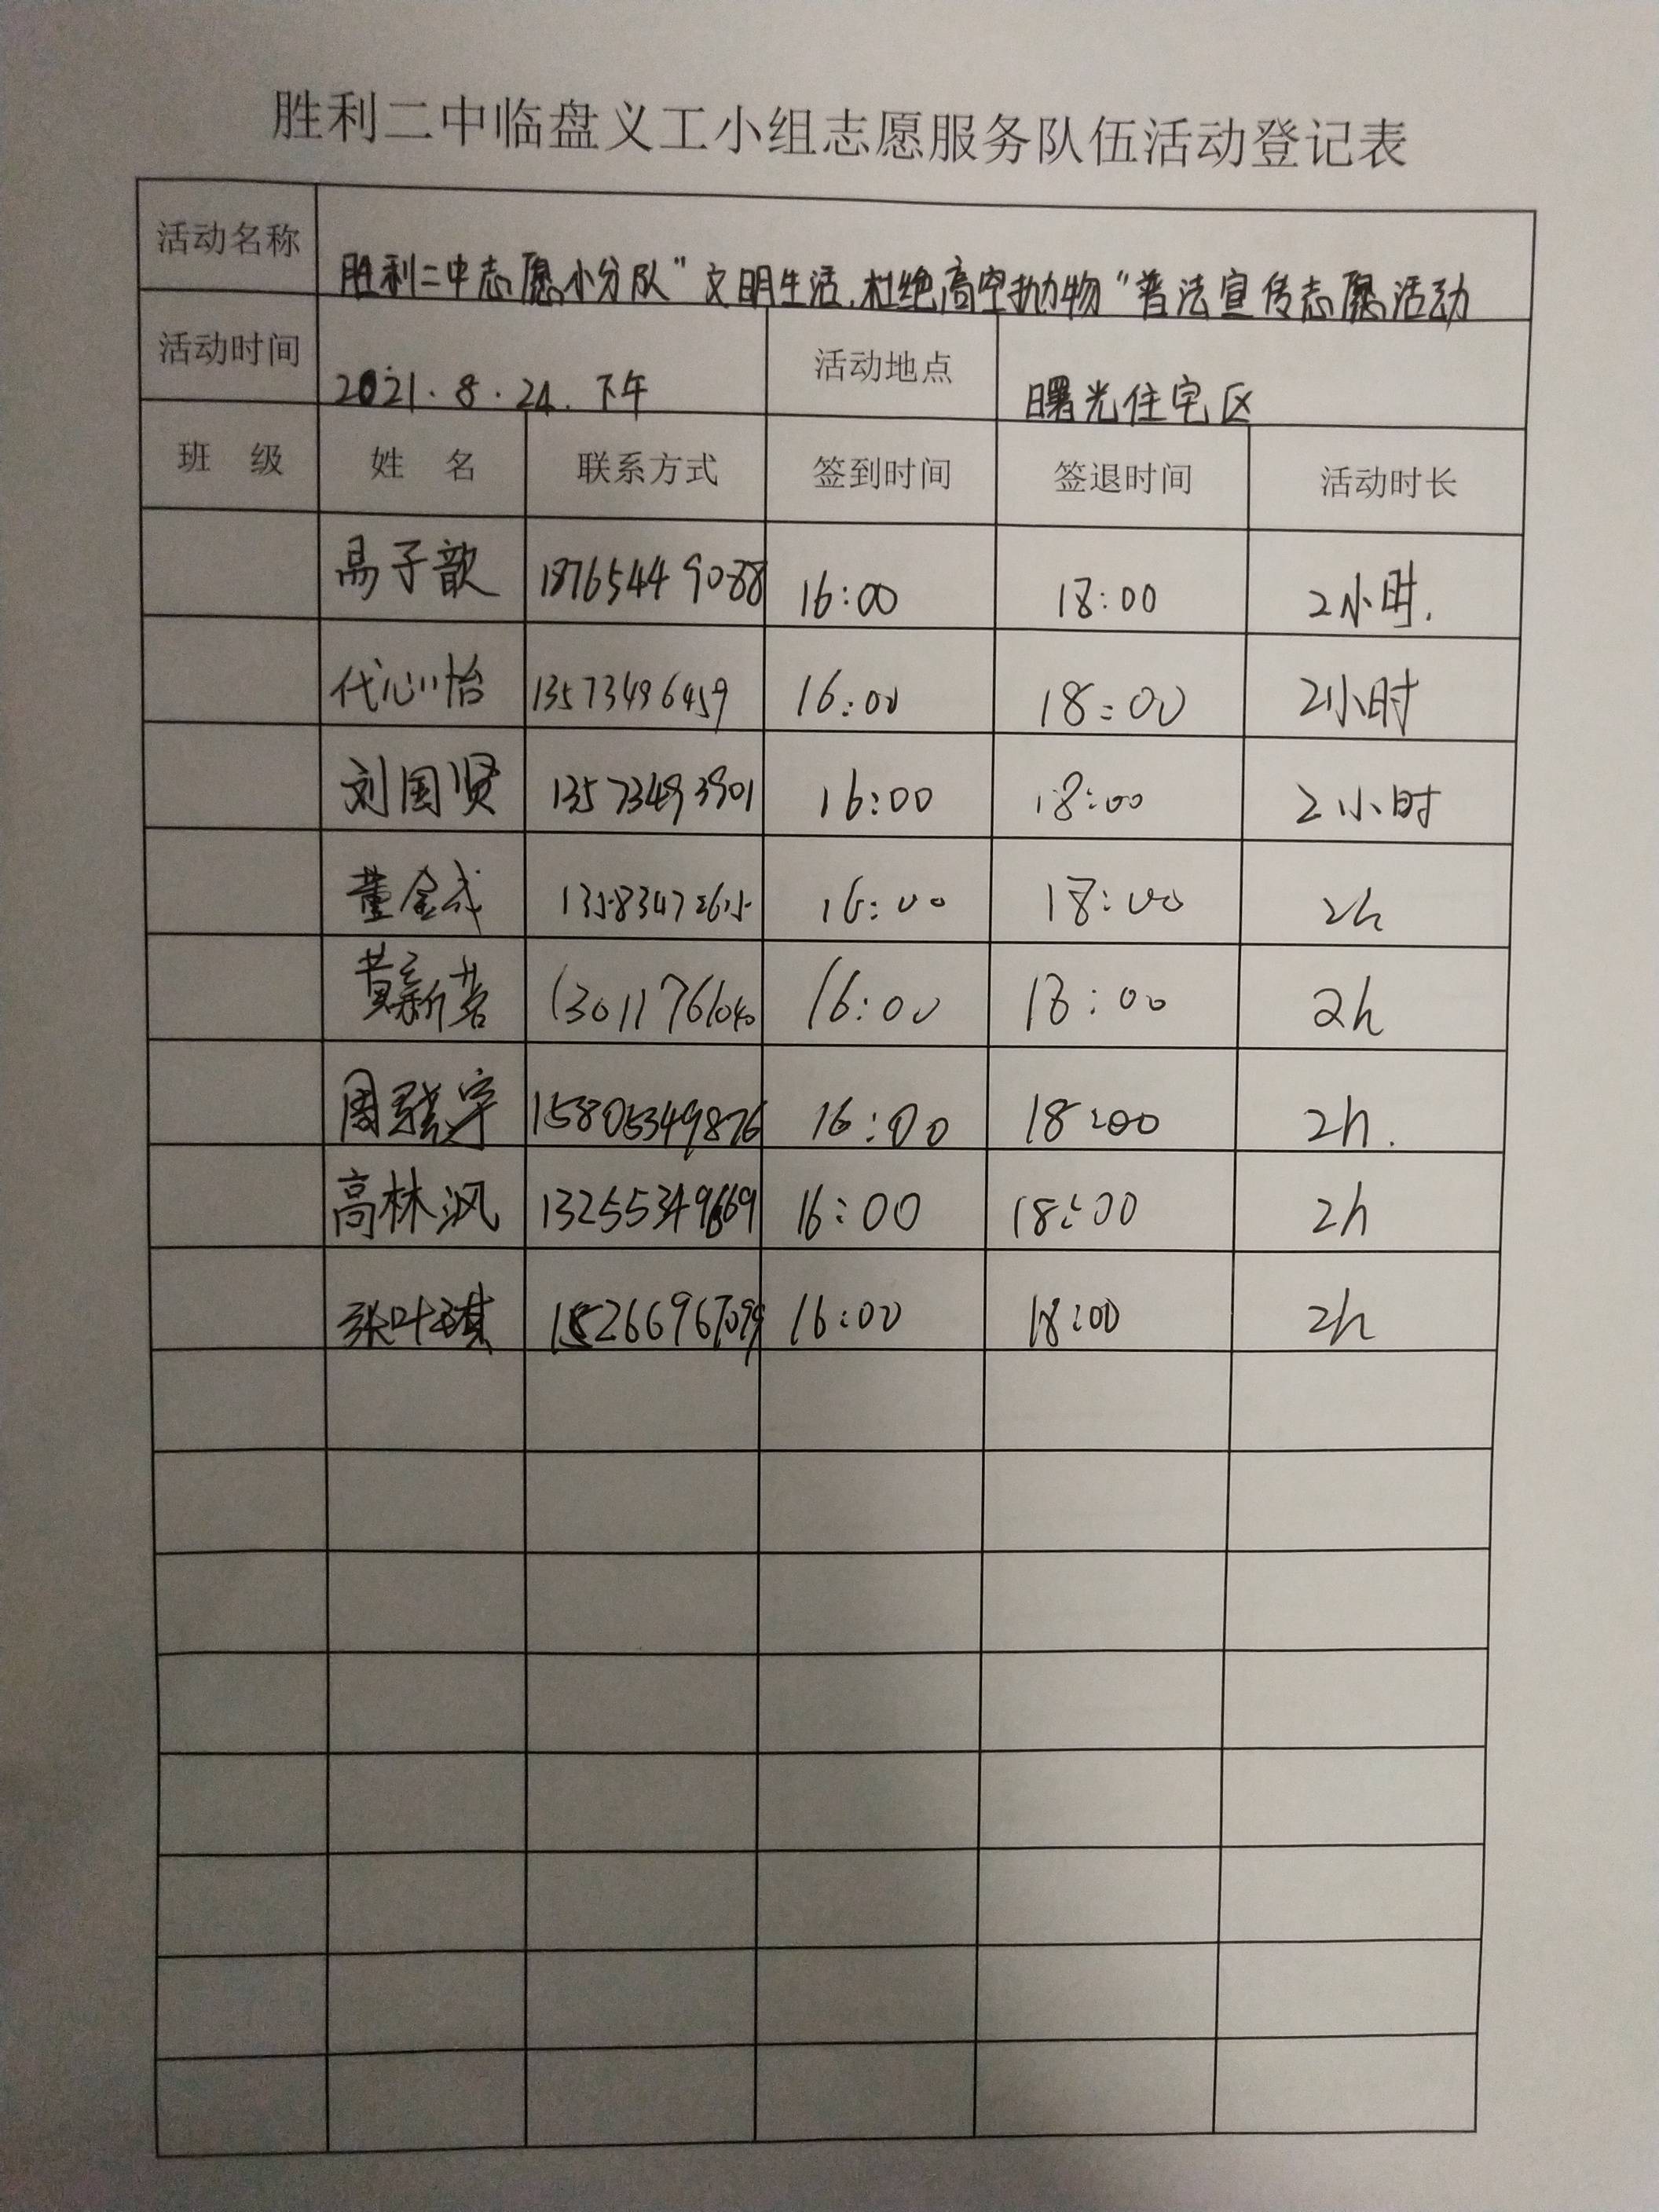 胜利二中临盘义工小组志愿服务队伍活动登记表
活动名称 胜利二中志愿小分队"文明生活,杜绝高空抛物"普法宣传志愿活动
活动时间 2021.8.24.下午 活动地点 曙光住宅区
班 级 姓 名 联系方式 签到时间 签退时间 活动时长
易子歆 18765449088 16:00 18:00 2小时.
代心怡 13573496459 16:00 18:00 2小时
刘国贤 13573493901 16:00 18:00 2小时
董金成 16:00 18:00 2h
黄新茗 13011761040 16:00 18:00 2h
周 宇 15805349876 16:00 18:00 2h.
高林沨 13255349669 16:00 18:00 2h
张叶琪 15266967099 16:00 18:00 2h